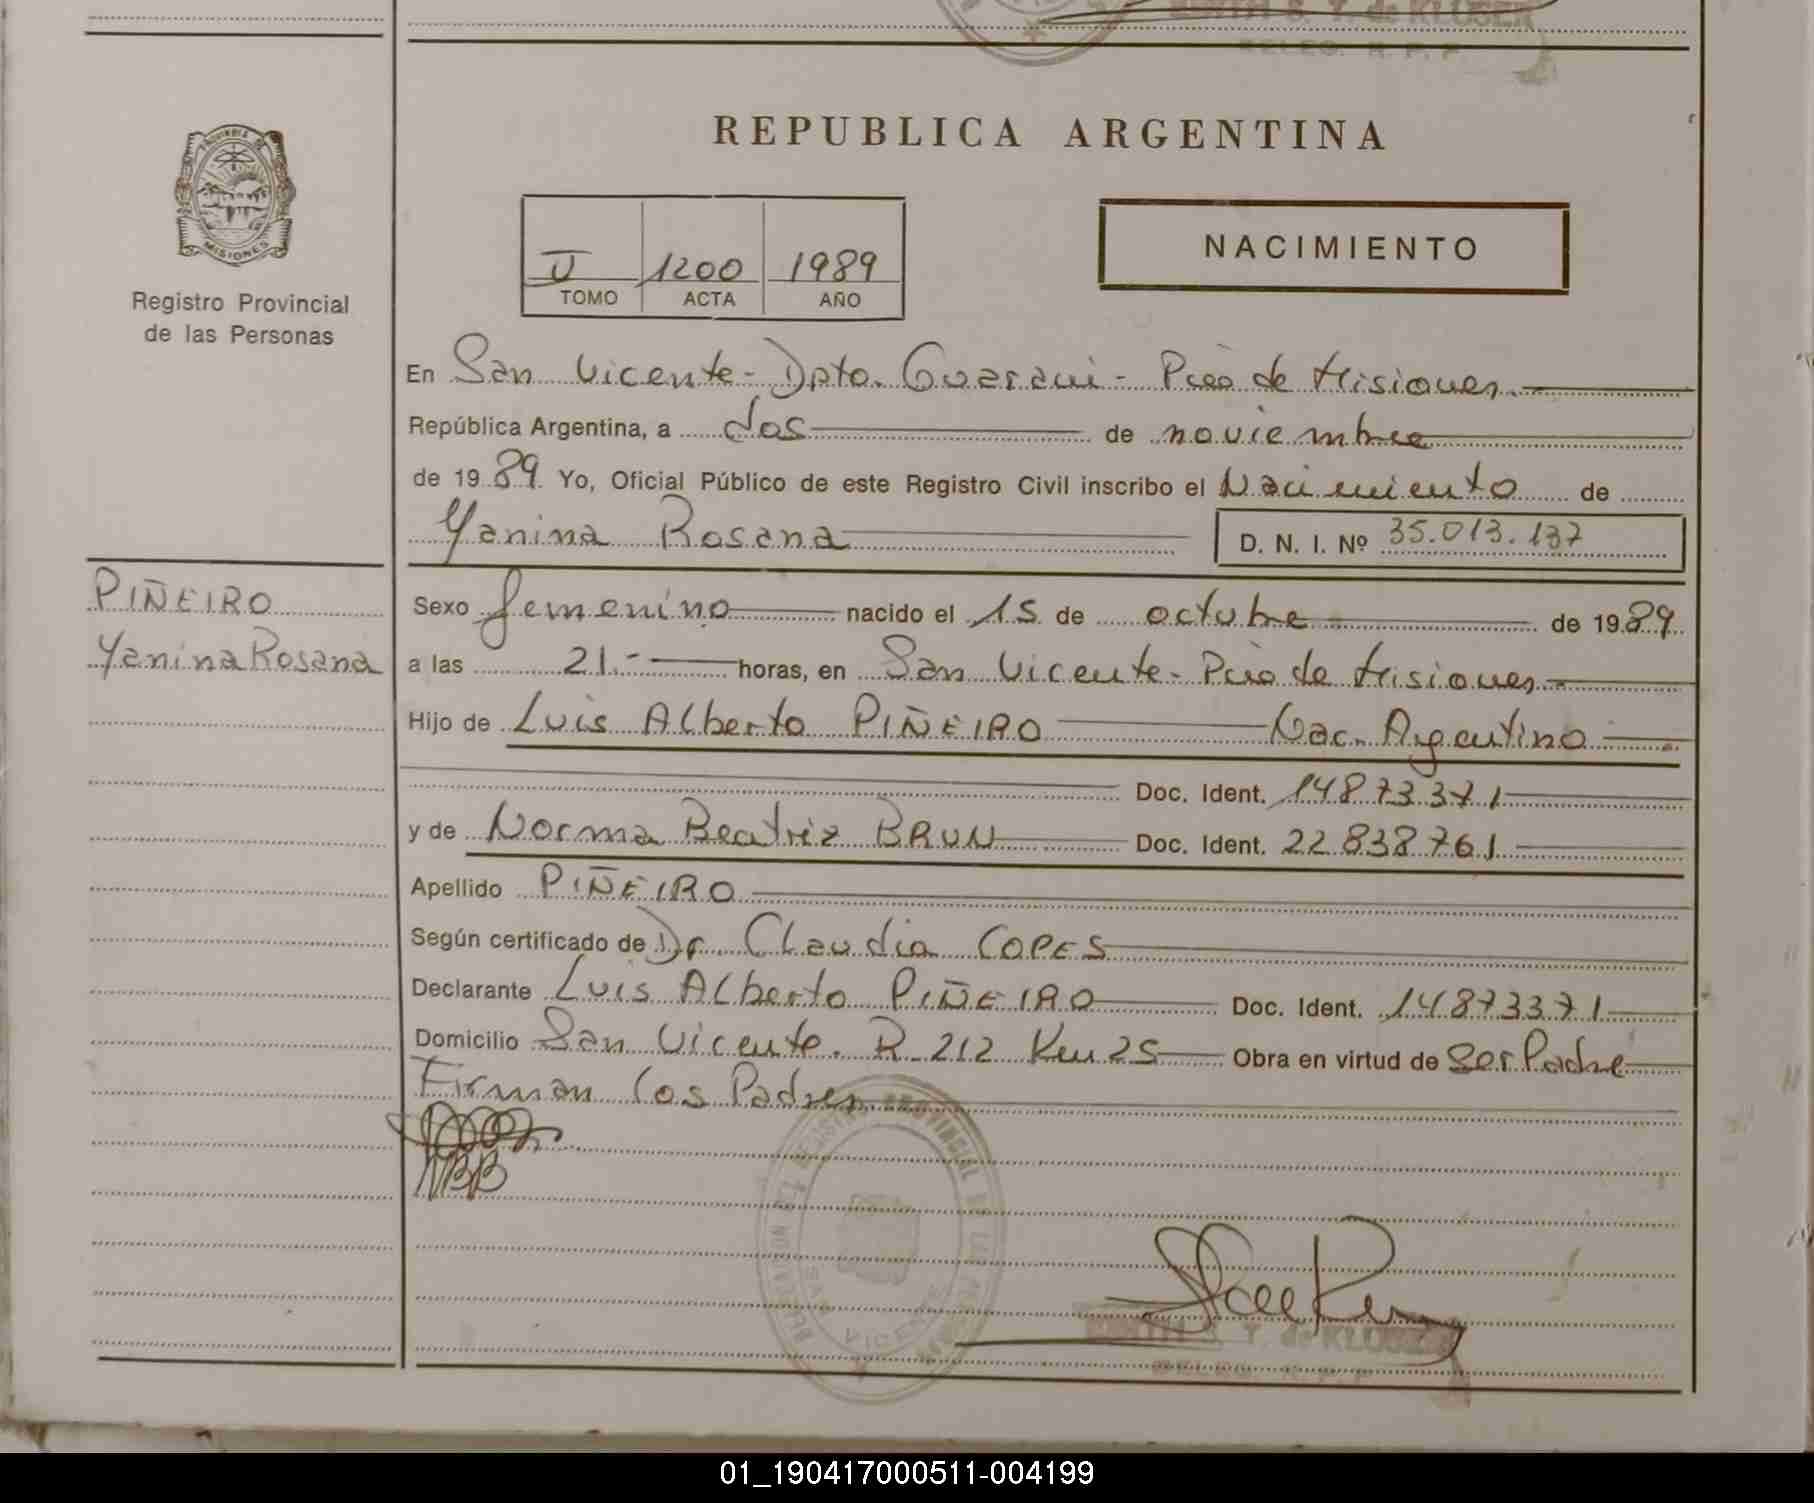 REPUBLICA ARGENTINA
PROVINCIA DE
MISIONES
Registro Provincial
de las Personas
1200 1989
TOMO ACTA AÑO
NACIMIENTO
En San Vicente - Dpto. Guarani - Pcia de Misiones.
República Argentina, a dos de noviembre
de 1989 Yo, Oficial Público de este Registro Civil inscribo el Nacimiento de
Yanina Rosana D. N. I. Nº 35.013.137
PIÑEIRO
Yanina Rosana
Sexo femenino nacido el 15 de octubre de 1989
a las 21.- horas, en San Vicente - Pcia de Misiones
Hijo de Luis Alberto PIÑEIRO Nac. Argentino
Doc. Ident. 14873371
y de Norma Beatriz BRUN Doc. Ident. 22838761
Apellido PIÑEIRO
Según certificado de Dr. Claudia COPES
Declarante Luis Alberto PIÑEIRO Doc. Ident. 14873371
Domicilio San Vicente. R. 212 Km 25 Obra en virtud de Ser Padre
Firman los Padres
NBB
REGISTRO PROVINCIAL DE LAS
SAN VICENTE
Y. de KLUSER
DELEG. R. P. P.
01_190417000511-004199